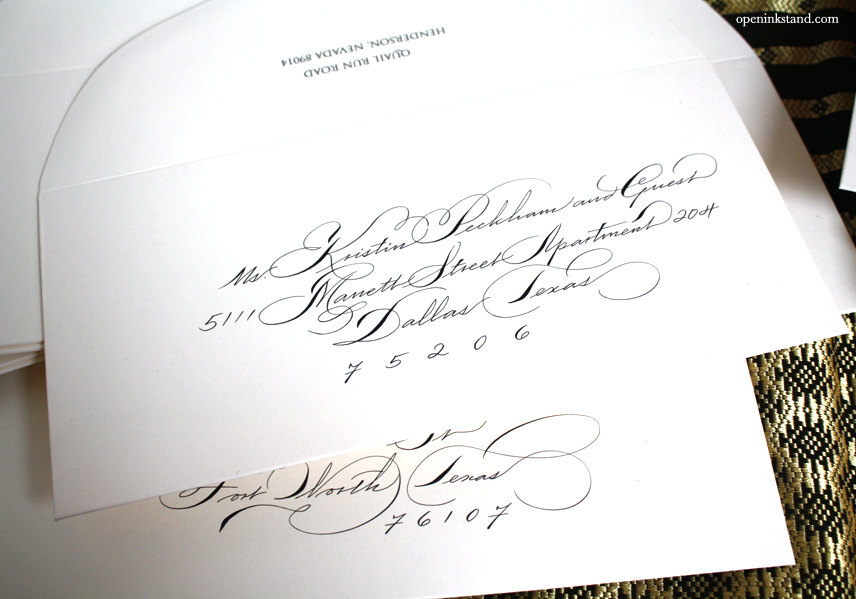 openinkstand.com
QUAIL RUN ROAD
HENDERSON, NEVADA 89014
Ms. Kristin Peckham and Guest
5111 Manett Street Apartment 204
Dallas Texas
75206
Fort Worth Texas
76107